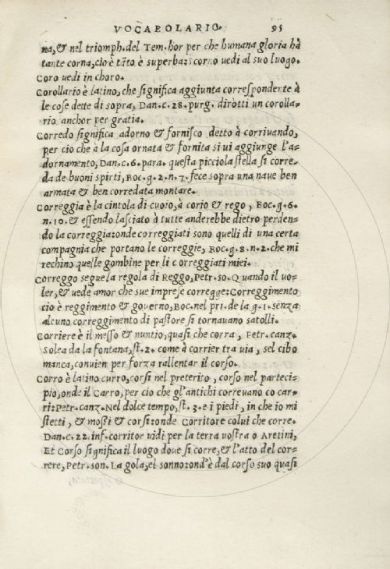 VOCABOLARIO. 95
na, & nel triomph. del Tem. hor per che humana gloria hà
tante corna, cio è tãto è superba: corno uedi al suo luogo.
Coro uedi in choro.
Corollario è latino, che significa aggiunta correspondente à
le cose dette di sopra, Dan. c. 28. purg. dirotti un corolla-
rio anchor per gratia.
Corredo significa adorno & fornisco detto à corriuando,
per cio che à la cosa ornata & fornita si ui aggiunge l'a-
dornamento, Dan. c. 6. para. questa picciola stella si corre-
da de buoni spirti, Boc. g. 2. n. 7. fece sopra una naue ben
armata & ben corredata montare.
Correggia è la cintola di cuoro, à corio & rego, Boc. g. 6.
n. 10. & essendo lasciato à tutte anderebbe dietro perden-
do la correggia: onde correggiati sono quelli di una certa
compagnia che portano le correggie, Boc. g. 8. n. 2. che mi
rechino quelle gombine per li correggiati miei.
Correggo segue la regola di Reggo, Petr. so. Quando il uo-
ler, & uede amor che sue imprese corregge: Correggimento
cio è reggimento & gouerno, Boc. nel pri. de la g. 1. senza
alcuno correggimento di pastore si tornauano satolli.
Corriere è il messo & nuntio, quasi che corra, Petr. canz.
Solea da la fontana, st. 2. come à corrier tra uia, se'l cibo
manca, conuien per forza rallentar il corso.
Corro è latino curro, corsi nel preterito, corso nel partici-
pio, onde il Carro, per cio che gl'antichi correuano co car-
ri: Petr. canz. Nel dolce tempo, st. 3. e i piedi, in ch'io mi
stetti, & mossi & corsi: onde Corritore colui che corre.
Dan. c. 22. inf. corritor uidi per la terra uostra o Aretini,
Et Corso significa il luogo doue si corre, & l'atto del cor-
rere, Petr. son. La gola, e'l sonno: ond'è dal corso suo quasi